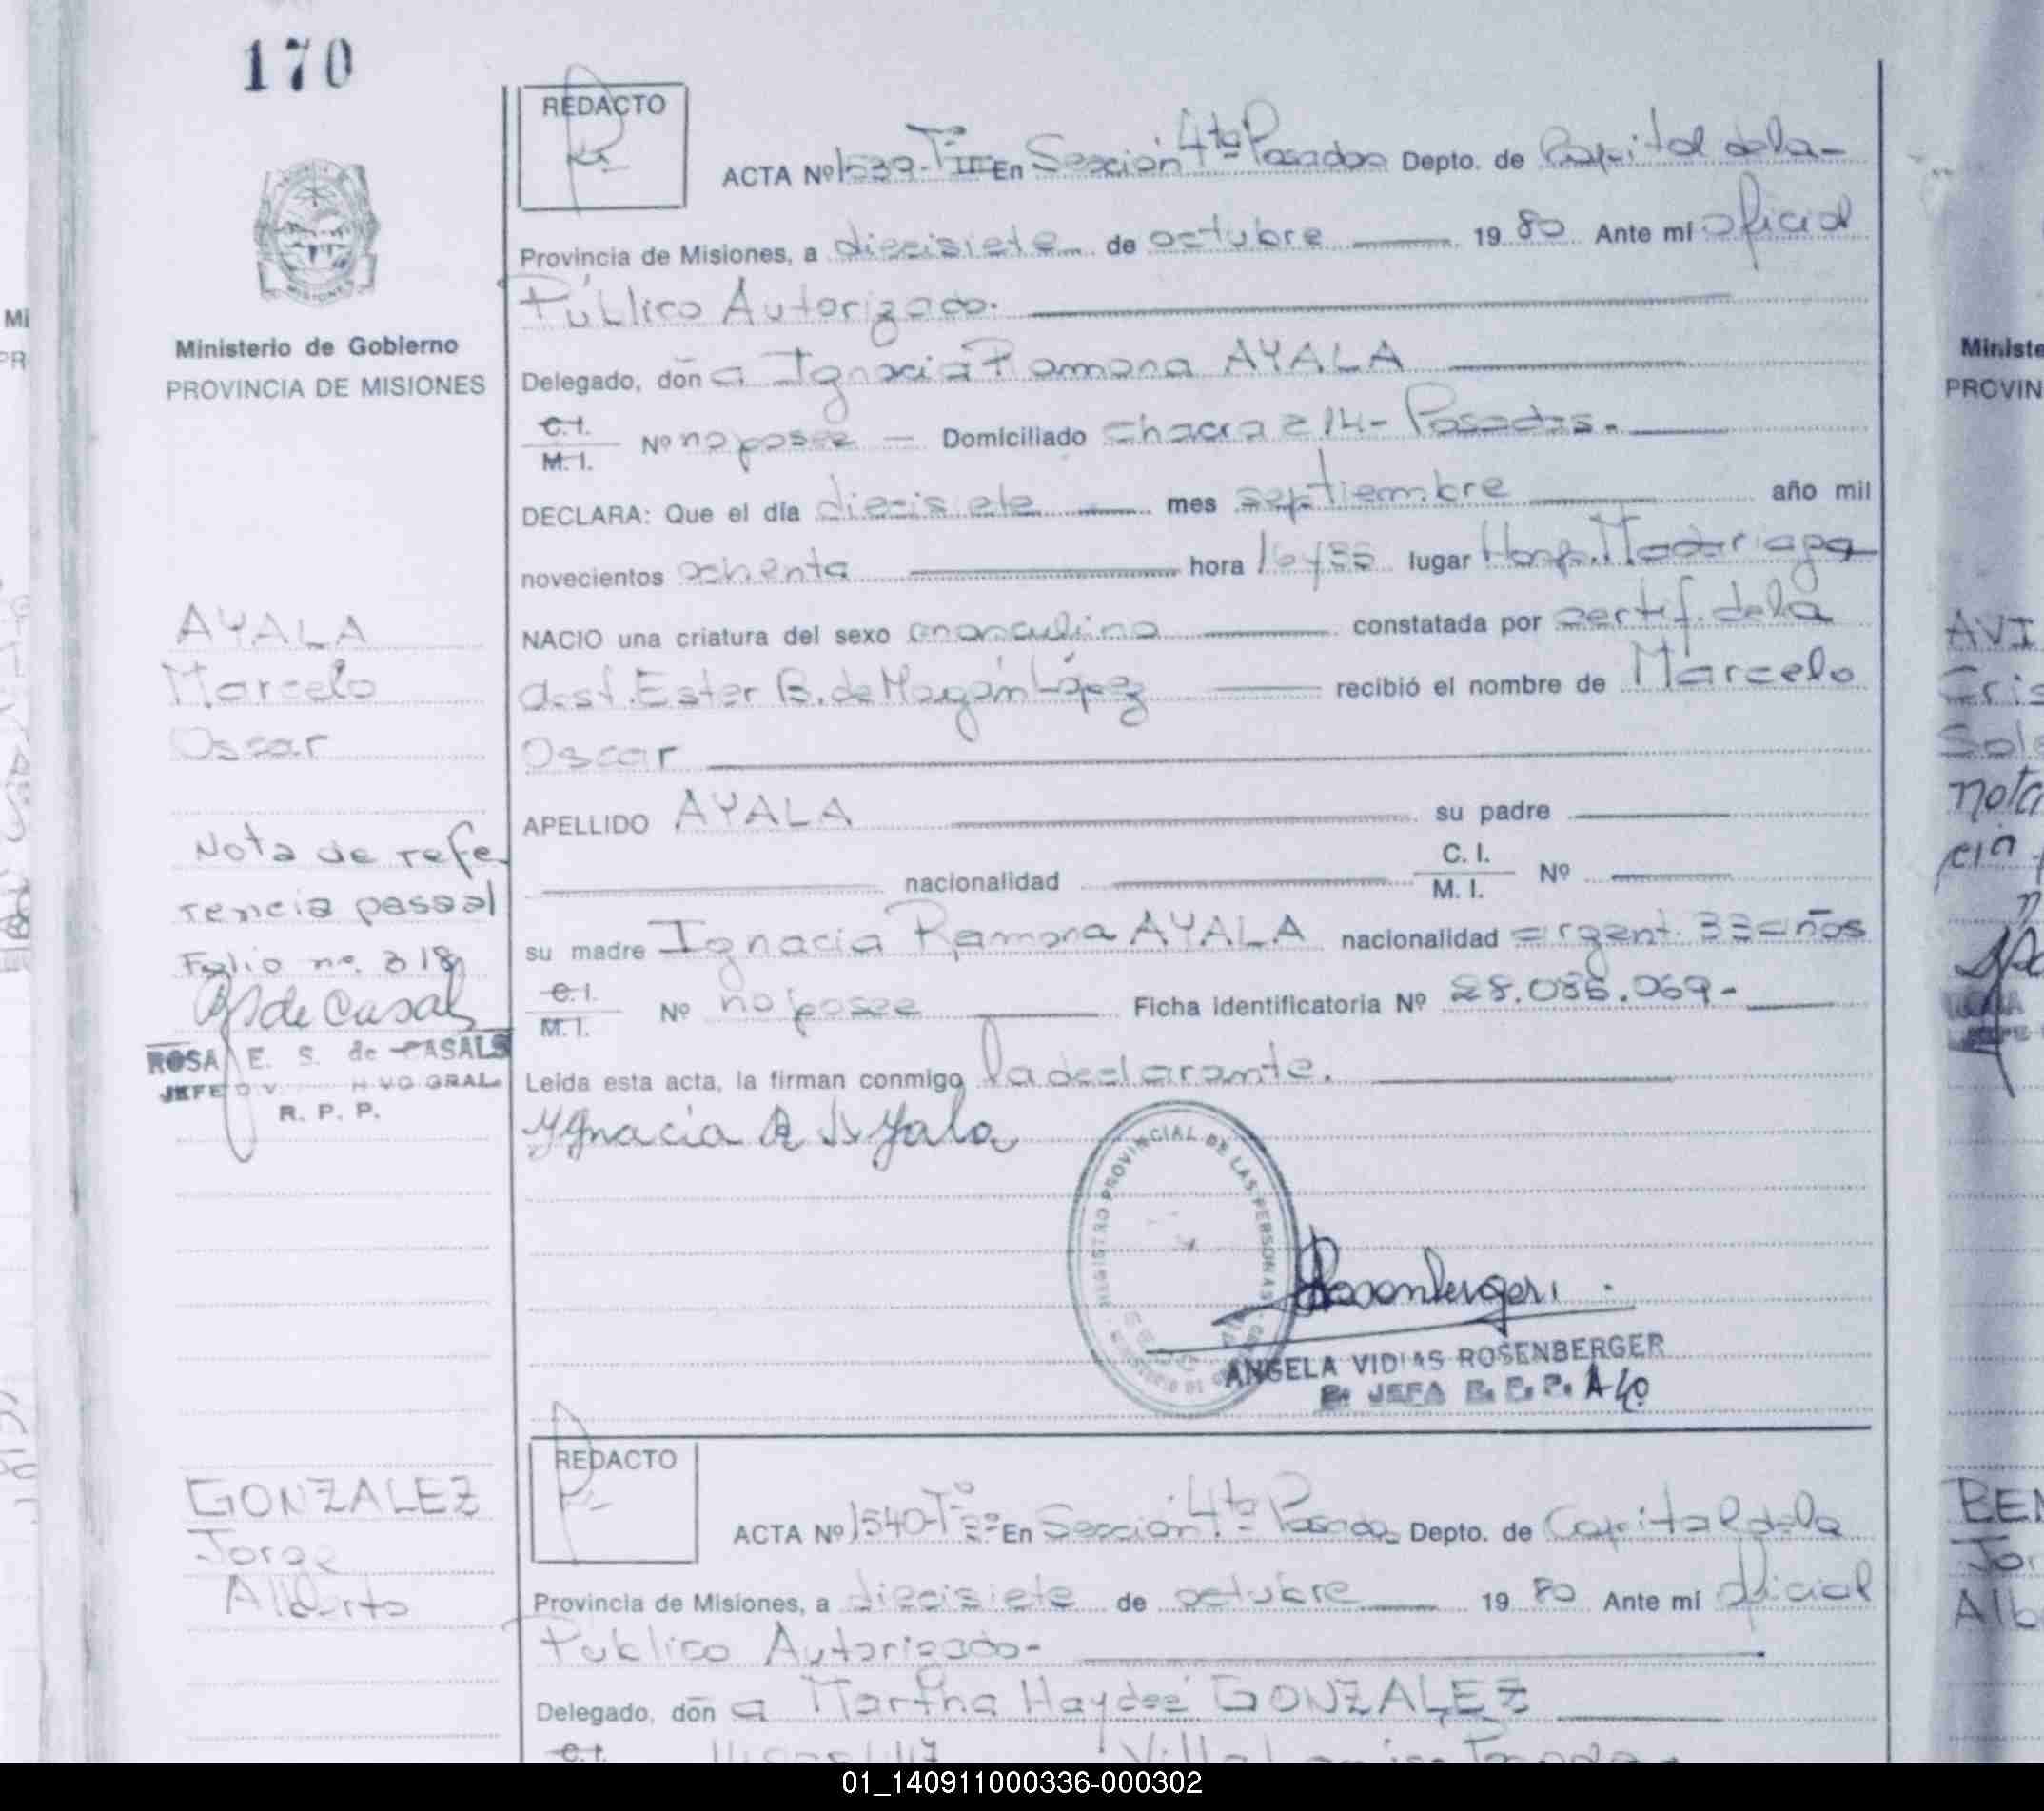 170
REDACTO
ACTA Nº 1539-T III En Sección 4ta Posadas Depto. de Capital de la-
Provincia de Misiones, a diecisiete de octubre 19 80 Ante mí oficial
Público Autorizado.
Ministerio de Gobierno
PROVINCIA DE MISIONES
Delegado, don a Ignacia Ramona AYALA
C.I.
M.I. Nº no posee — Domiciliado chacra 214- Posadas.
DECLARA: Que el día diecisiete mes septiembre año mil
novecientos ochenta hora lugar Hosp. Madariaga
NACIO una criatura del sexo masculino constatada por certif. de la
obst. Ester B. de López recibió el nombre de Marcelo
Oscar
APELLIDO AYALA su padre
nacionalidad C. I.
M. I. Nº
su madre Ignacia Ramona AYALA nacionalidad argent. 33 años
C.I.
M.I. Nº no posee Ficha identificatoria Nº 28.086.069-
Leída esta acta, la firman conmigo la declarante.
Ygnacia R Ayala
REGISTRO PROVINCIAL DE LAS PERSONAS
Rosenberger
ANGELA VIDIAS ROSENBERGER
JEFA R. P. P.
AYALA
Marcelo
Oscar
Nota de refe
rencia pasa al
Folio nº. 318
de Casals
ROSA E. S. de CASALS
JEFE GRAL.
R. P. P.
REDACTO
ACTA Nº 1540-T En Sección 4ta Posadas Depto. de Capital de la
Provincia de Misiones, a diecisiete de octubre 19 80 Ante mí oficial
Público Autorizado-
Delegado, don a Martha Haydeé GONZALEZ
C.I.
GONZALEZ
Jorge
Alberto
Mi
PR
Ministe
PROVIN
AVI
Cris
nota
BEN
Jor
Alb
01_140911000336-000302